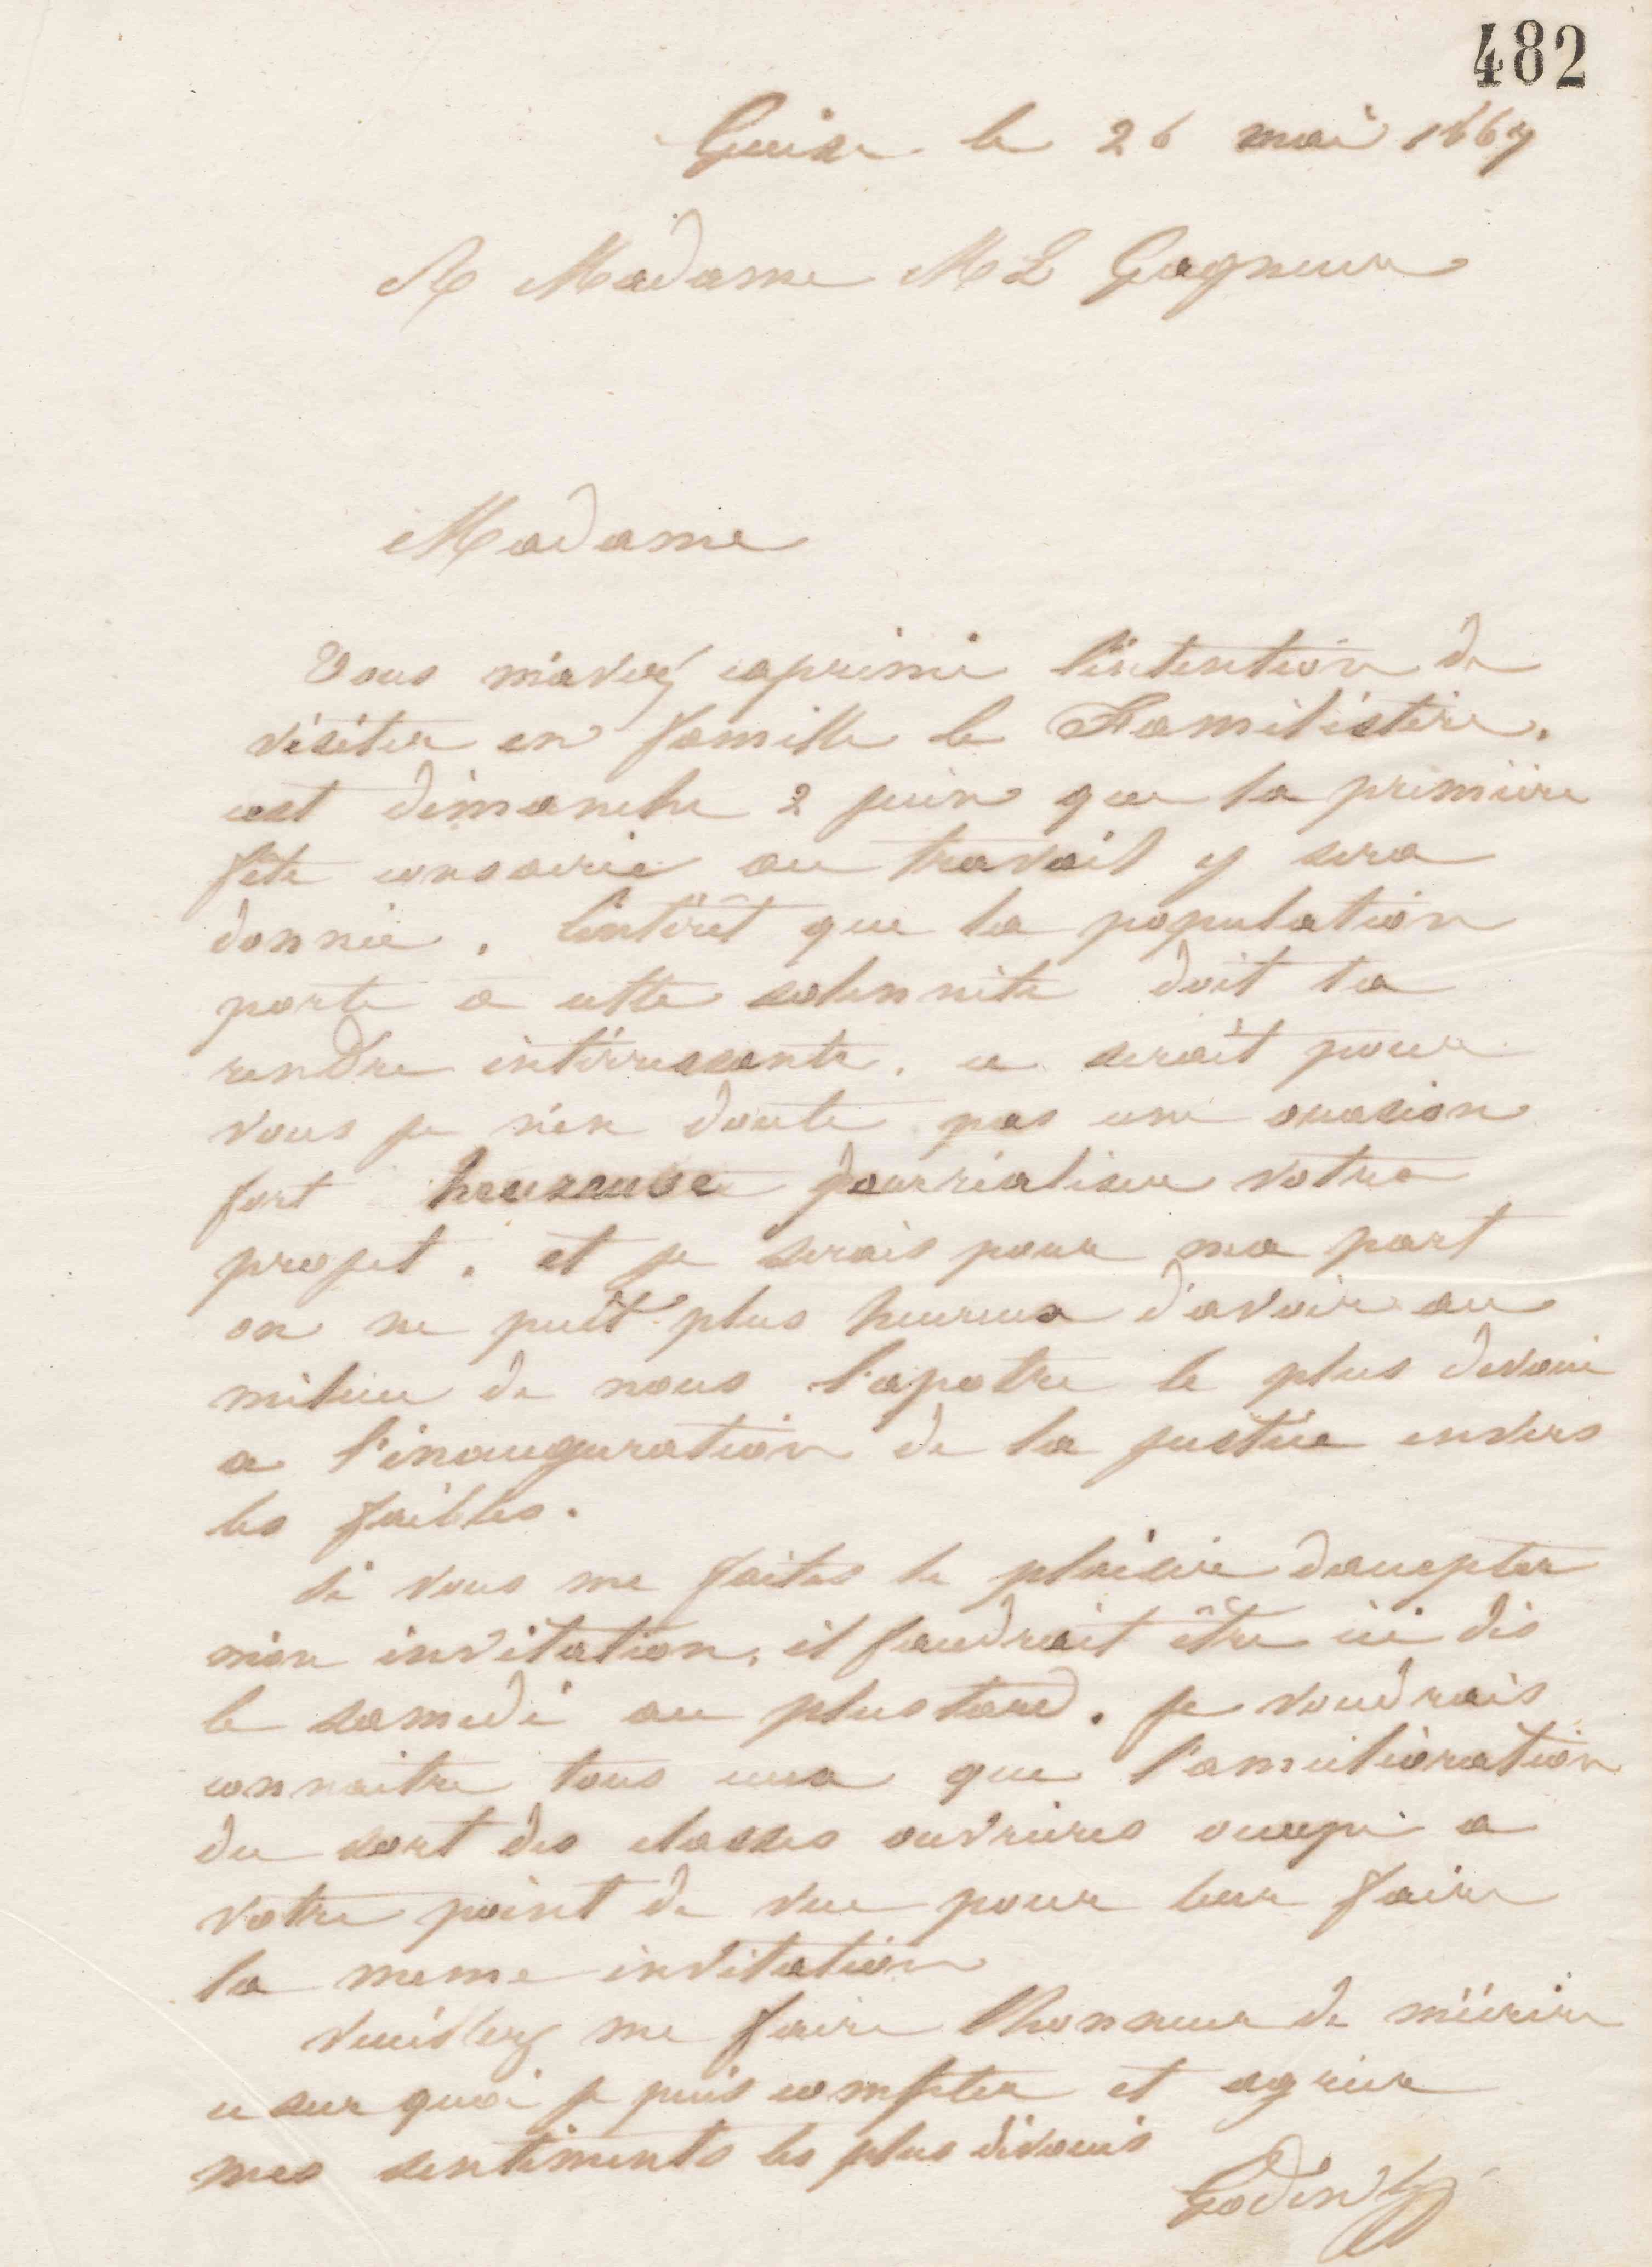 482
Guise le 26 mai 1867
A Madame M L Gagneur
Madame
Vous m'avez exprimé l'intention de
visiter en famille le Familistère.
cest dimanche 2 juin que la première
fête consacrée au travail y sera
donnée. L'intérêt que la population
porte a cette solennité doit la
rendre intérressante. ce serait pour
vous je n'en doute pas une occasion
fort heureuse pour réaliser votre
projet. et je serais pour ma part
on ne peut plus heureux d'avoir au
milieu de nous l'apotre le plus dévoué
a l'inauguration de la justice envers
les faibles.
Si vous me faites le plaisir daccepter
mon invitation, il faudrait être ici dès
le samedi au plus tard. je voudrais
connaitre tous ceux que l'amélioration
du sort des classes ouvrières occupe a
votre point de vue pour leur faire
la meme invitation
Veuillez me faire l'honneur de m'écrire
ce sur quoi je puis compter et agréer
mes sentiments les plus dévoués
Godin